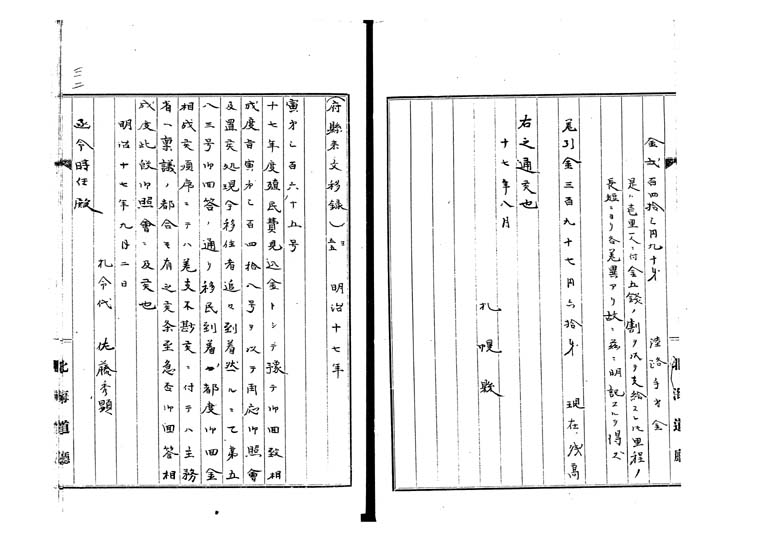 金弍百四拾〻円九十銭　陸路手当金
是ハ壱里一人ニ付金五銭ノ割ヲ以テ支給スレトモ里程ノ
長短ニヨリ各差異アリ故ニ茲ニ明記スルヲ得ズ
差引金三百九十七円六拾銭　現在残高
右之通候也
十七年八月
札幌縣
北海道廳
(府縣来文移録)　明治十七年
寅第〻百六十五号
十七年度殖民費見込金トシテ豫テ御回致相
成度旨寅第〻百四拾八号ヲ以テ両応御照會
及置候処現今移住者追々到着然ルニ〻第五
八三号御回答ノ通リ移民到着ノ都度御回金
相成候順序ニテハ差支不尠候ニ付テハ主務
省ヘ稟議ノ都合モ有之候条至急否御回答相
成度此段御照會ニ及候也
明治十七年九月二日
札令代　佐藤秀顕
函令時任殿
北海道廳
三二